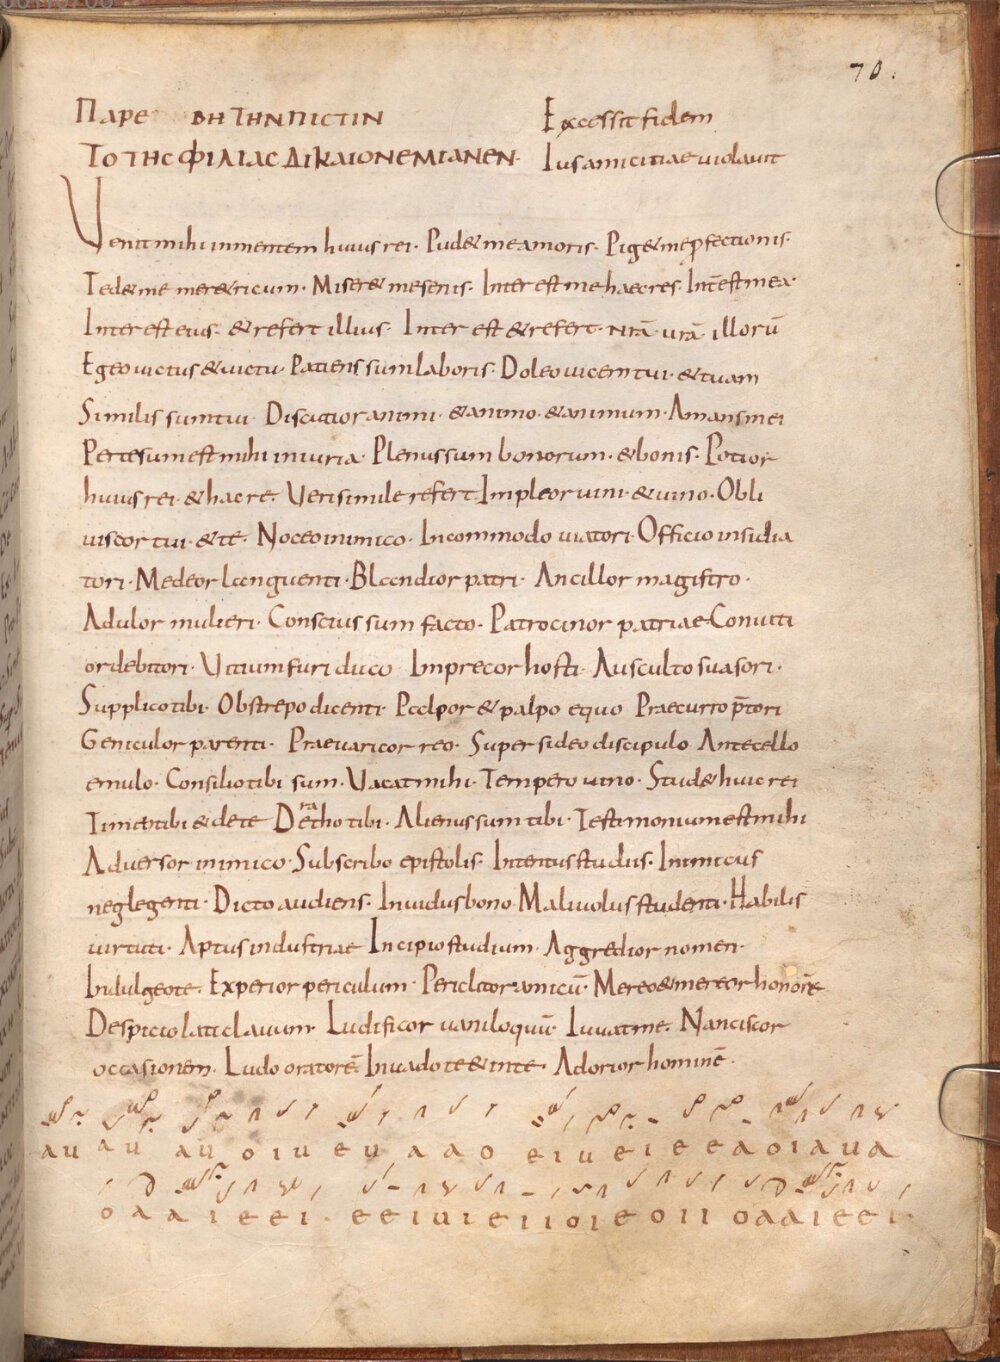 70.
Παρε βη την πιςτιν Excessit fidem
Το της φιλιας δικαιον εμιανεν· Ius amicitiae violavit
Venit mihi in mentem huius rei· Pud&me amoris· Pig&me pfectionis·
Ted&me mer&ricum· Miser& me senis· Interest me haec res· Int̄est mea·
Interest eius· & refert illius· Inter est & refert· nrā urā illorū
Egeo uictus & uictu· Patiens sum laboris· Doleo uicem tui· & tuam
Similis sum tui· Discutior animi· & animo· & animum· Amans mei
Pertesum est mihi iniuria· Plenus sum bonorum· & bonis· Potior
huius rei· & hac re· Verisimile refert Impleor uini· & uino· Obli
uiscor tui· & te· Noceo inimico· Incommodo uiatori· Officio insidia
tori· Medeor languenti· Blandior patri· Ancillor magistro·
Adulor mulieri· Conscius sum facto· Patrocinor patriae Conuiti
or debitori· Vitium furi duco Imprecor hosti· Ausculto suasori·
Supplico tibi· Obstrepo dicenti· Palpor & palpo equo Praecurro p̄tori
Geniculor parenti· Praeuaricor reo· Super sideo discipulo Antecello
emulo· Consilio tibi sum· Vacat mihi· Tempero uino· Stud& huic rei
Timeo tibi & de te Detraho tibi· Alienus sum tibi· Testimonium est mihi
Aduersor inimico· Subscribo epistolis· Intentus studiis· Inimicus
neglegenti· Dicto audiens· Inuidus bono· Maliuolus studenti· Habilis
uirtuti· Aptus industriae Incipio studium· Aggredior nomen·
Indulgeo te· Experior periculum· Periclitor unicū· Mereo & mereor honorē
Despicio laticlauum· Ludificor uaniloquū· Iuuat me· Nanciscor
occasionem· Ludo oratorē· Inuado te & in te· Adorior hominē·
a u a u a u o i u e u a a o e i u e i e e a o i a u a
o a a i e e i · e e i u i e i i o i e o i i o a a i e e i ·